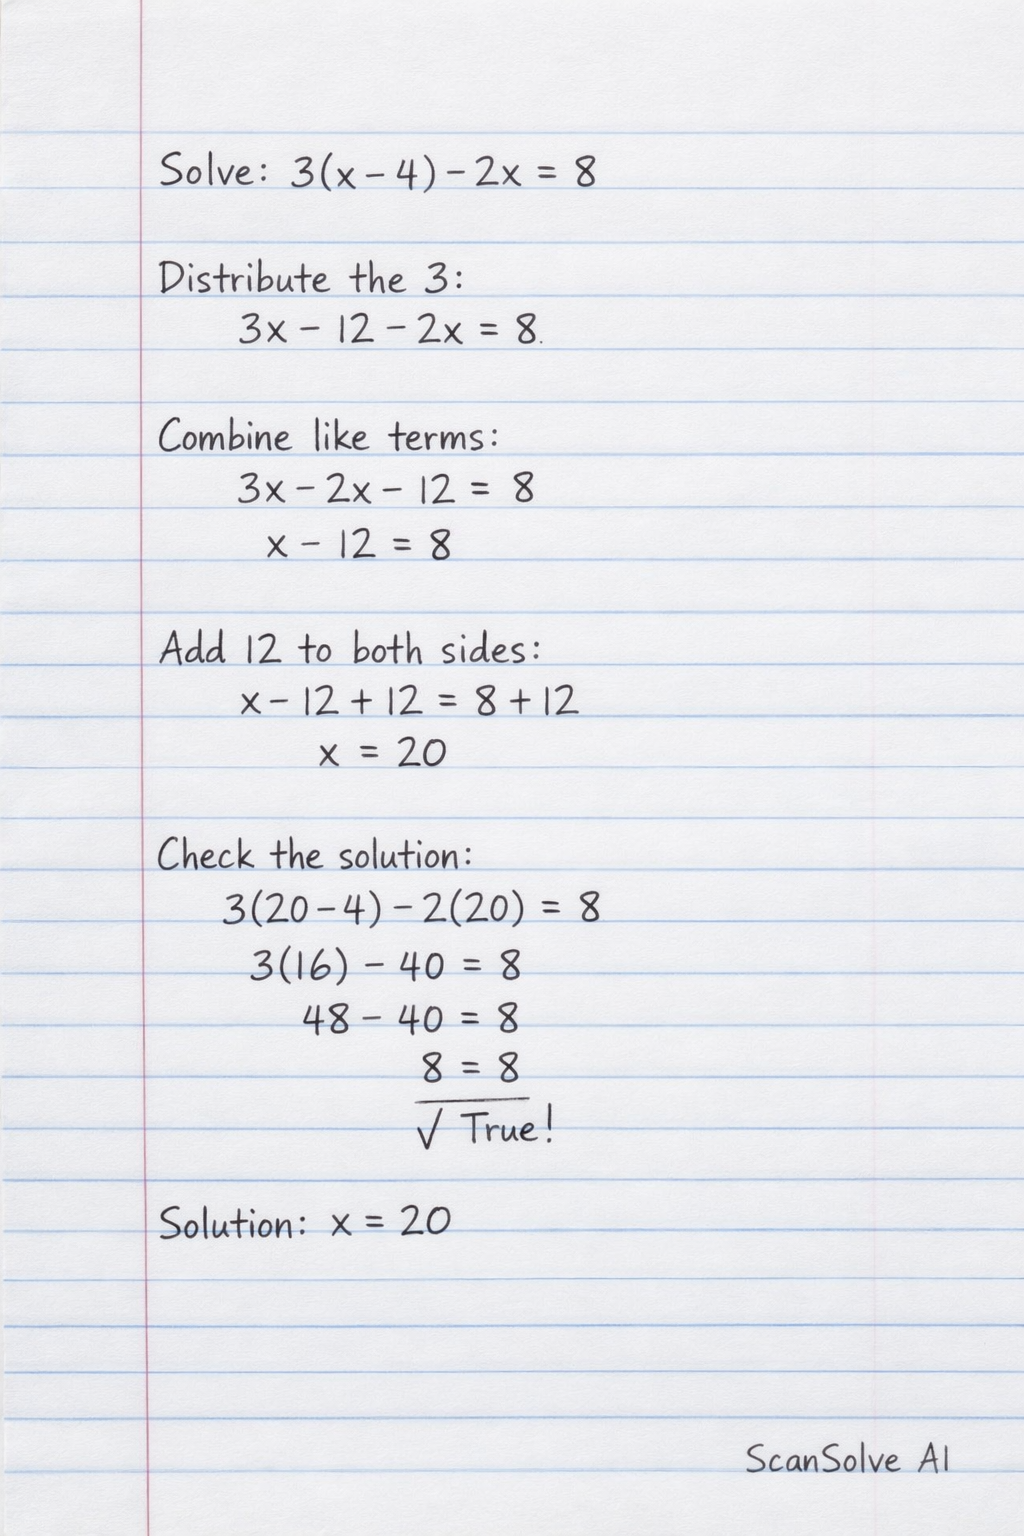 Solve: 3(x - 4) - 2x = 8
Distribute the 3:
3x - 12 - 2x = 8.
Combine like terms:
3x - 2x - 12 = 8
x - 12 = 8
Add 12 to both sides:
x - 12 + 12 = 8 + 12
x = 20
Check the solution:
3(20 - 4) - 2(20) = 8
3(16) - 40 = 8
48 - 40 = 8
8 = 8
√ True!
Solution: x = 20
ScanSolve AI